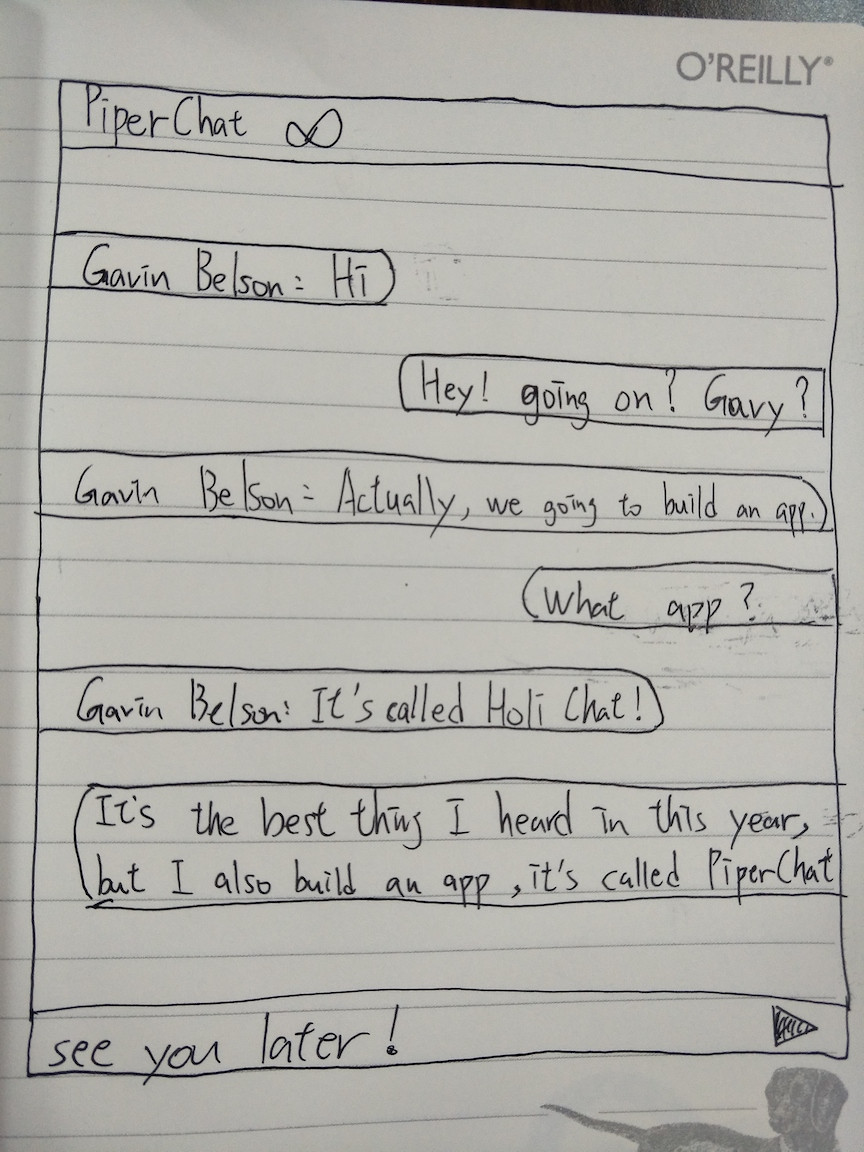 O'REILLY®
PiperChat ∞
Gavin Belson: Hi
Hey! going on? Gavy?
Gavin Belson: Actually, we going to build an app.
What app?
Gavin Belson: It's called Holi Chat!
It's the best thing I heard in this year,
but I also build an app, it's called PiperChat
see you later!